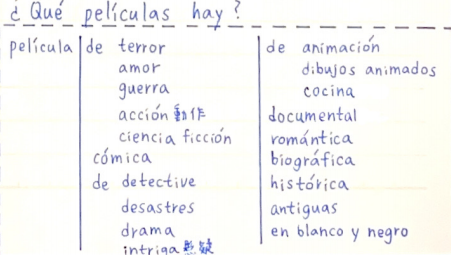 ¿ Qué películas hay ?
película de terror
amor
guerra
acción 動作
ciencia ficción
cómica
de detective
desastres
drama
intriga 懸疑
de animación
dibujos animados
cocina
documental
romántica
biográfica
histórica
antiguas
en blanco y negro